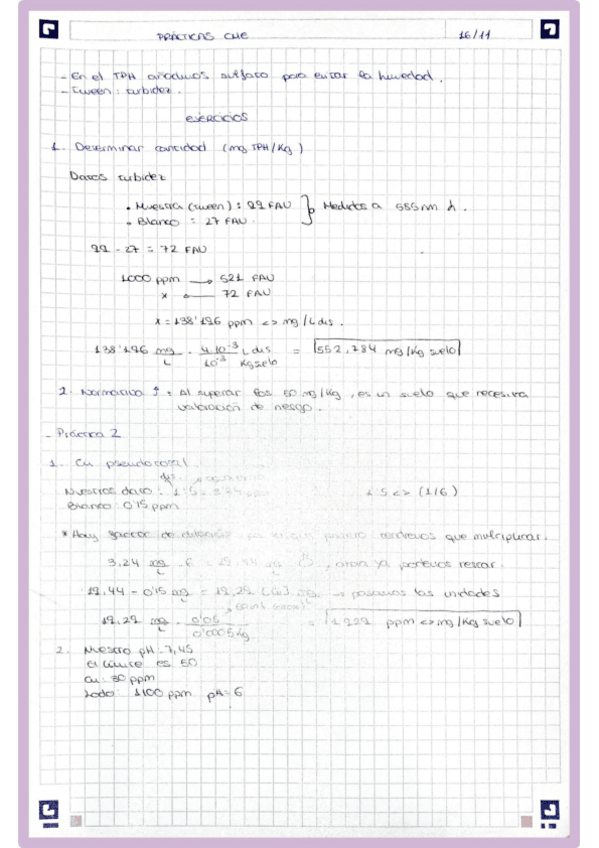 PRÁCTICAS CME 16/11
- En el TPH añadimos sulfato para evitar la humedad.
- Tween: turbidez.
EJERCICIOS
1. Determinar cantidad (mg TPH/Kg)
Datos turbidez
• Muestra (tween): 99 FAU
• Blanco = 27 FAU.
Medidos a 555 nm λ.
99 - 27 = 72 FAU
1000 ppm → 521 FAU
x ← 72 FAU
x = 138'196 ppm <> mg/L dis.
138'196 mg/L · 4·10⁻³ L dis / 10⁻³ Kg suelo = 552,784 mg/Kg suelo
2. Normativa ↑: Al superar los 50 mg/Kg, es un suelo que necesita
valoración de riesgo.
- Práctica 2
1. Cu pseudototal.
Nuestros datos: 1:5 = 3'24 1:5 <> (1/6)
Blanco: 0'15 ppm
* Hay factor de dilución, por lo que primero tendremos que multiplicar.
3,24 mg/L · 6 = 19,44 mg/L, ahora ya podemos restar.
19,44 - 0'15 mg/L = 19,29 mg/L → pasamos las unidades
19,29 mg/L · 0'05 / 0'0005 kg = 1929 ppm <> mg/Kg suelo
2. Nuestro pH: 7,45
El límite es 50
Cu: 30 ppm
Lodo: 1100 ppm pH = 6